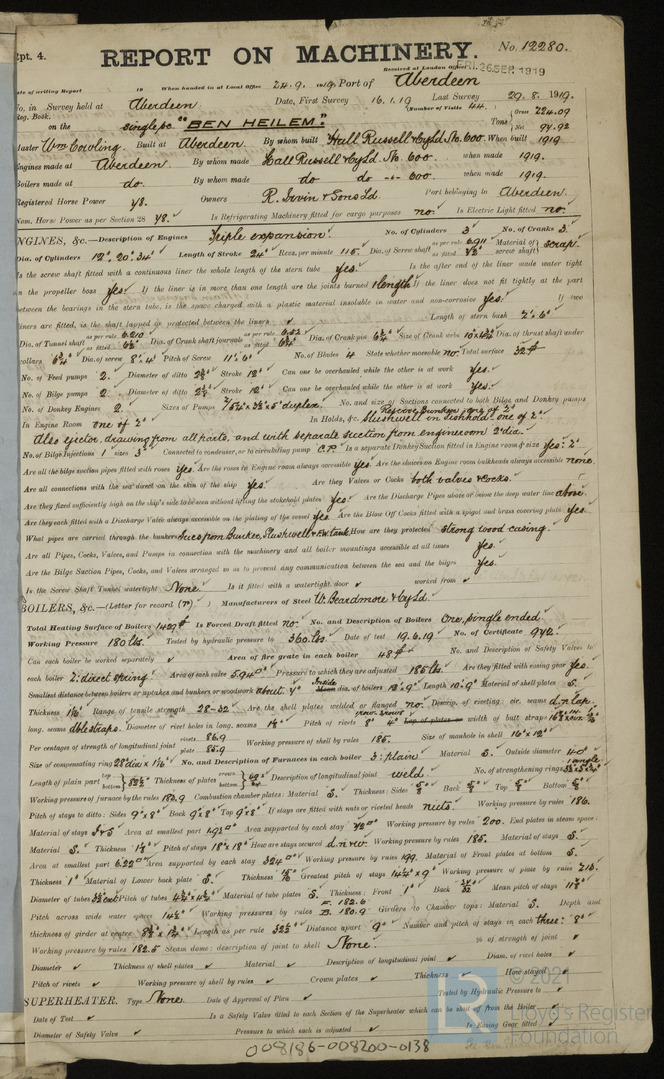 Rpt. 4.
REPORT ON MACHINERY.
No. 12280.
Received at London Office FRI. 26 SEP. 1919
Date of writing Report 19 When handed in at Local Office 24.9.1919 Port of Aberdeen
No. in Survey held at Aberdeen Date, First Survey 16.1.19 Last Survey 29.8.1919.
Reg. Book. (Number of Visits 44.)
on the single sc. "BEN HEILEM." Tons Gross 224.09 Net 94.92
Master Wm Cowling. Built at Aberdeen. By whom built Hall Russell & Cy Ld. No. 600 When built 1919
Engines made at Aberdeen. By whom made Hall Russell & Cy Ld. No. 600. when made 1919.
Boilers made at do. By whom made do do 600 when made 1919.
Registered Horse Power 48. Owners R. Irvin & Sons Ld Port belonging to Aberdeen.
Nom. Horse Power as per Section 28 48. Is Refrigerating Machinery fitted for cargo purposes no. Is Electric Light fitted no.
ENGINES, &c.—Description of Engines Triple expansion. No. of Cylinders 3 No. of Cranks 3.
Dia. of Cylinders 12", 20", 34" Length of Stroke 24" Revs. per minute 115. Dia. of Screw shaft as per rule 6.911 as fitted Material of screw shaft scrap
Is the screw shaft fitted with a continuous liner the whole length of the stern tube yes. Is the after end of the liner made water tight
in the propeller boss yes. If the liner is in more than one length are the joints burned 1 length If the liner does not fit tightly at the part
between the bearings in the stern tube, is the space charged with a plastic material insoluble in water and non-corrosive yes. If two
liners are fitted, is the shaft lapped or protected between the liners Length of stern bush 2' 6"
Dia. of Tunnel shaft as per rule as fitted Dia. of Crank shaft journals as per rule as fitted Dia. of Crank pin 6¾" Size of Crank webs Dia. of thrust shaft under
collars 6¾" Dia. of screw 8' 4" Pitch of Screw 11' 6" No. of Blades 4 State whether moveable no. Total surface 32 ft
No. of Feed pumps 2. Diameter of ditto Stroke 12" Can one be overhauled while the other is at work yes.
No. of Bilge pumps 2. Diameter of ditto Stroke 12" Can one be overhauled while the other is at work yes.
No. of Donkey Engines 2. Sizes of Pumps duplex. No. and size of Suctions connected to both Bilge and Donkey pumps
In Engine Room one of 2" In Holds, &c. Reserve Bunker one of 2" Slushwell in fishhold one of 2"
Also ejector drawing from all parts, and with separate suction from engineroom 2" dia.
No. of Bilge Injections 1 sizes 3" Connected to condenser, or to circulating pump C.P. Is a separate Donkey Suction fitted in Engine room & size yes: 2"
Are all the bilge suction pipes fitted with roses yes. Are the roses in Engine room always accessible yes Are the sluices on Engine room bulkheads always accessible none.
Are all connections with the sea direct on the skin of the ship yes. Are they Valves or Cocks both valves & cocks.
Are they fixed sufficiently high on the ship's side to be seen without lifting the stokehold plates yes. Are the Discharge Pipes above or below the deep water line above.
Are they each fitted with a Discharge Valve always accessible on the plating of the vessel yes. Are the Blow Off Cocks fitted with a spigot and brass covering plate yes.
What pipes are carried through the bunkers Sucs from Bunker, Slushwell & F.W. tank. How are they protected strong wood casing.
Are all Pipes, Cocks, Valves, and Pumps in connection with the machinery and all boiler mountings accessible at all times yes.
Are the Bilge Suction Pipes, Cocks, and Valves arranged so as to prevent any communication between the sea and the bilges yes.
Is the Screw Shaft Tunnel watertight None. Is it fitted with a watertight door worked from
BOILERS, &c.—(Letter for record (r)) Manufacturers of Steel W. Beardmore & Cy Ld.
Total Heating Surface of Boilers 1427 ft Is Forced Draft fitted no. No. and Description of Boilers One, single ended.
Working Pressure 180 lbs. Tested by hydraulic pressure to 360 lbs. Date of test 19.6.19 No. of Certificate 942.
Can each boiler be worked separately Area of fire grate in each boiler 48 ft No. and Description of Safety Valves to
each boiler 2: direct spring. Area of each valve 5.94" Pressure to which they are adjusted 185 lbs. Are they fitted with easing gear yes.
Smallest distance between boilers or uptakes and bunkers or woodwork about 4" Inside dia. of boilers 12' 9" Length 10' 9" Material of shell plates S.
Thickness Range of tensile strength 28-32 Are the shell plates welded or flanged no. Descrip. of riveting: cir. seams d.r. lap.
long. seams dble straps. Diameter of rivet holes in long. seams Pitch of rivets 8" 4" Lap of plates or width of butt straps
Per centages of strength of longitudinal joint rivets 86.9 plate 85.9 Working pressure of shell by rules 185. Size of manhole in shell 16" x 12"
Size of compensating ring No. and Description of Furnaces in each boiler 3: plain Material S. Outside diameter 40"
Length of plain part top bottom Thickness of plates crown bottom Description of longitudinal joint weld. No. of strengthening rings 1 angle
Working pressure of furnace by the rules 182.9 Combustion chamber plates: Material S. Thickness: Sides ⅝" Back ⅝" Top ⅝" Bottom
Pitch of stays to ditto: Sides 9" x 8" Back 9" x 8" Top 9" x 8" If stays are fitted with nuts or riveted heads nuts. Working pressure by rules 186.
Material of stays Area at smallest part Area supported by each stay Working pressure by rules 200. End plates in steam space:
Material S. Thickness Pitch of stays 18" x 18" How are stays secured d.n.w. Working pressure by rules 185. Material of stays S.
Area at smallest part 6.22" Area supported by each stay 324" Working pressure by rules 199. Material of Front plates at bottom S.
Thickness 1" Material of Lower back plate S. Thickness Greatest pitch of stays Working pressure of plate by rules 215.
Diameter of tubes Pitch of tubes Material of tube plates S. Thickness: Front 1" Back Mean pitch of stays
Pitch across wide water spaces Working pressures by rules F. 182.6 B. 180.9 Girders to Chamber tops: Material S. Depth and
thickness of girder at centre Length as per rule Distance apart 9" Number and pitch of stays in each three: 8"
Working pressure by rules 182.5 Steam dome: description of joint to shell None. % of strength of joint
Diameter Thickness of shell plates Material Description of longitudinal joint Diam. of rivet holes
Pitch of rivets Working pressure of shell by rules Crown plates Thickness How stayed
SUPERHEATER. Type None. Date of Approval of Plan Tested by Hydraulic Pressure to
Date of Test Is a Safety Valve fitted to each Section of the Superheater which can be shut off from the Boiler
Diameter of Safety Valve Pressure to which each is adjusted Is Easing Gear fitted
008186-008200-0138
© 2021
Lloyd's Register
Foundation